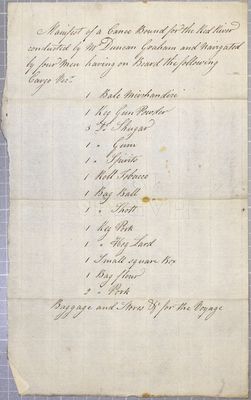 Manifest of a Canoe Bound for the Red River
conducted by Mr Duncan Graham and Navigated
by four Men having on Board the following
Cargo Viz.
1 Bale Merchandize
1 Keg Gun Powder
3 Do Shugar
1 " Gum
1 " Spirits
1 Roll Tobacco
1 Bag Ball
1 " Shott
1 Keg Pork
1 " Hog Lard
1 Small square Box
1 Bag flour
2 " Pork
Baggage and Stores &c for the Voyage